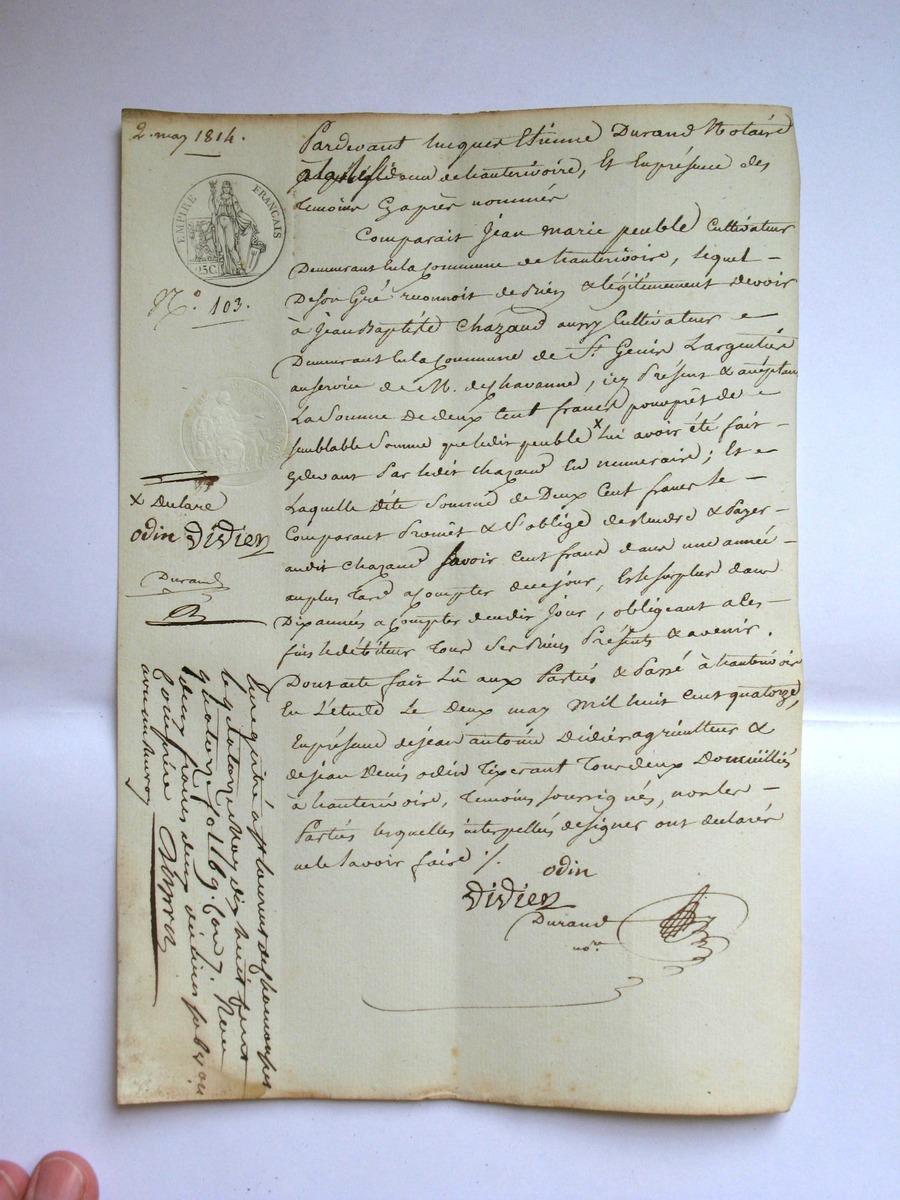 2. may 1814.
EMPIRE FRANÇAIS
25C
N.o 103.
x Declare
odin Didier
Durand
Pardevant Etienne Durand Notaire
de hauterivoire, Et En présence des
temoins Cyaprès nommés
Comparait Jean marie peuble Cultivateur
Demeurant En la Commune de hauterivoire, lequel
De son Gré reconnoit de bien & légitimement devoir
à Jean Baptiste Chazaud aussy Cultivateur
Demeurant En la Commune de St Genis Largentière
au service de M. de Chavanne, icy Présent & acéptant
La Somme De deux Cent francs pour prêt de
semblable Somme que ledit peuble x Lui avoir été fait
Cydevant Par ledit Chazaud En numeraire; Et
Laquelle dite Somme de Deux Cent francs le
Comparant Promêt & S'oblige de Rendre & Payer
audit Chazaud Savoir Cent francs dans une année
au plus Tard a Compter de ce jour, Et le surplus dans
Dix années a Compter dudit Jour, obligeant a Ces
fins le débiteur Tous Ses Biens Présents & avenir.
Dont acte fait Lû aux Parties & Passé à hauterivoire
En L'étude Le Deux may Mil huit Cent quatorze,
En présence de jean antoine Didier agriculteur &
de jean Denis odin Tixerant Tous deux Domiciliés
à hauterivoire, temoins soussignés, non les
Parties lesquelles interpellées de signer ont déclarés
ne le Savoir faire ./.
odin
Didier
Durand
nore
Enregistré à St Laurent de Chamousset
le quatorze May dix huit cent
quatorze fo 116 Reçu
deux francs deux décimes
compris